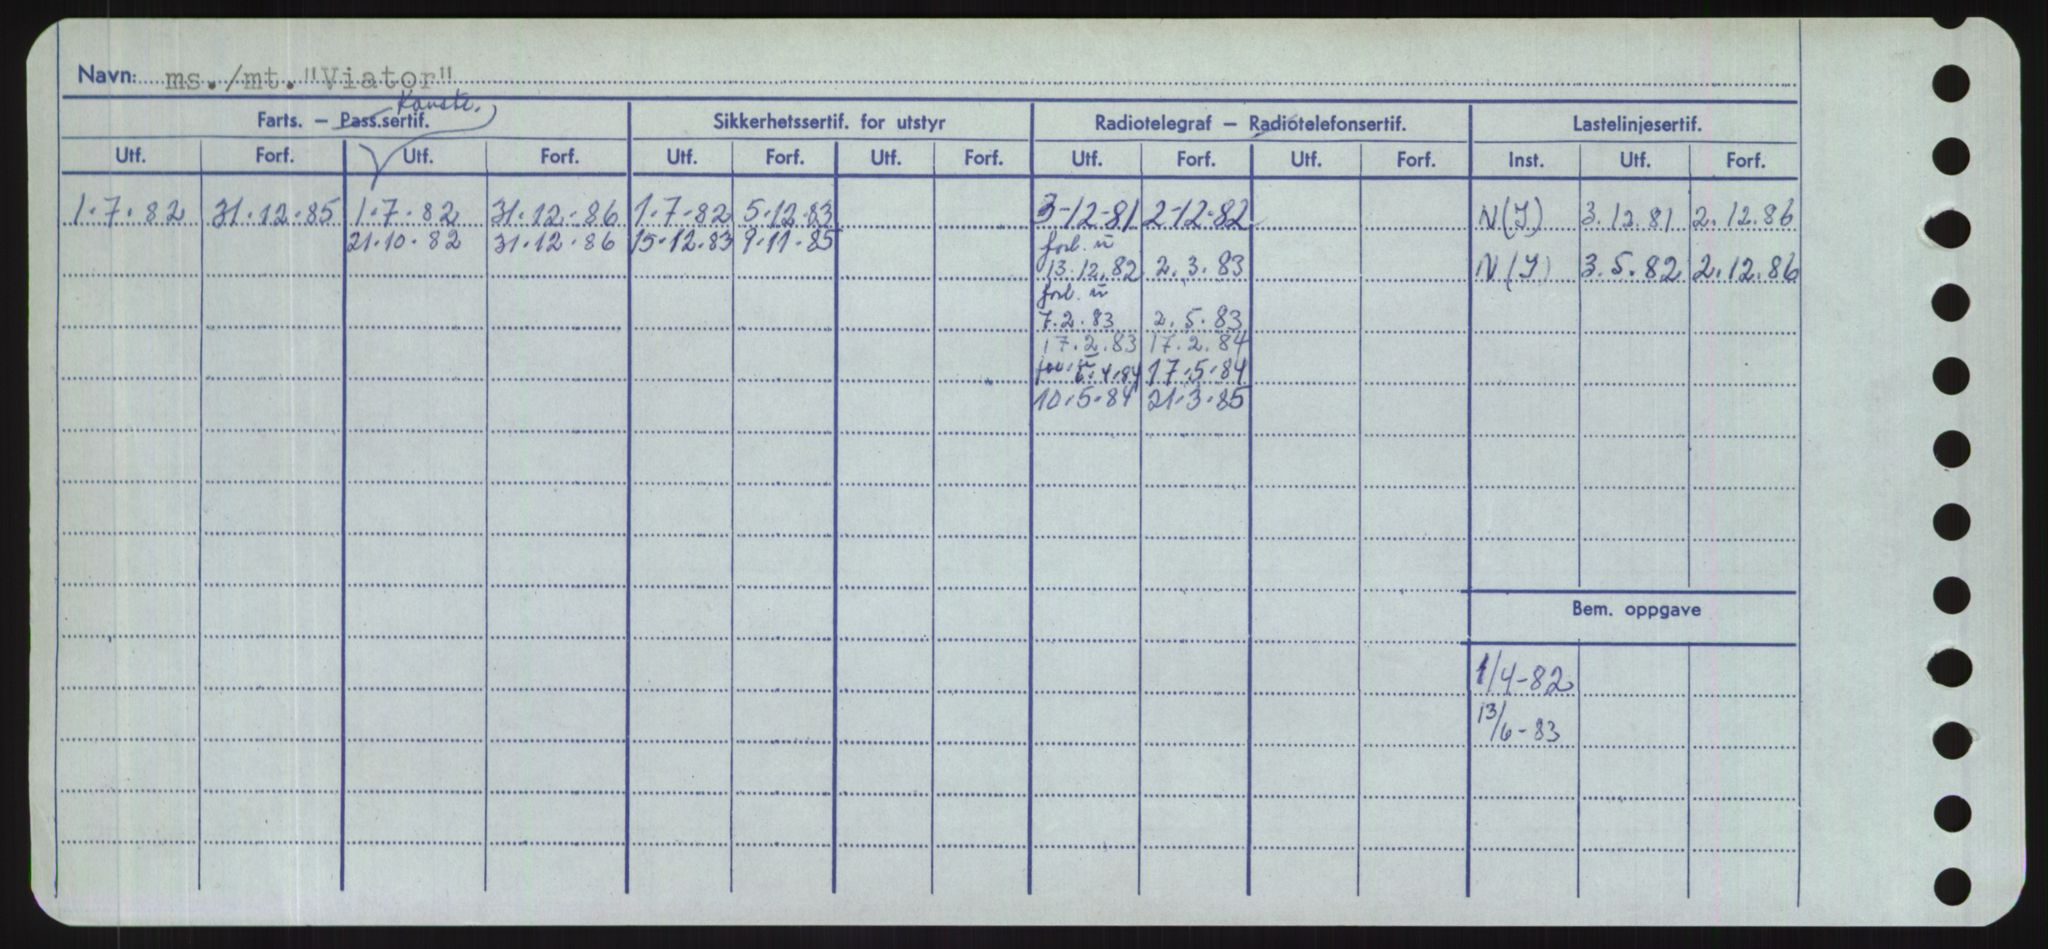 Navn: ms./mt. "Viator"
Konstr.
Farts. – Pass.sertif. Sikkerhetssertif. for utstyr Radiotelegraf – Radiotelefonsertif. Lastelinjesertif.
Utf. Forf. Utf. Forf. Utf. Forf. Utf. Forf. Utf. Forf. Utf. Forf. Inst. Utf. Forf.
1.7.82 31.12.85 1.7.82 31.12.86 1.7.82 5.12.83 3-12-81 2-12-82 N(I) 3.12.81 2.12.86
21.10.82 31.12.86 15.12.83 9.11.85 forl. u
13.12.82 2.3.83 N(I) 3.5.82 2.12.86
forl. u
7.2.83 2.5.83
17.2.83 17.2.84
6.4.84 17.5.84
10.5.84 21.3.85
Bem. oppgave
1/4-82
13/6-83